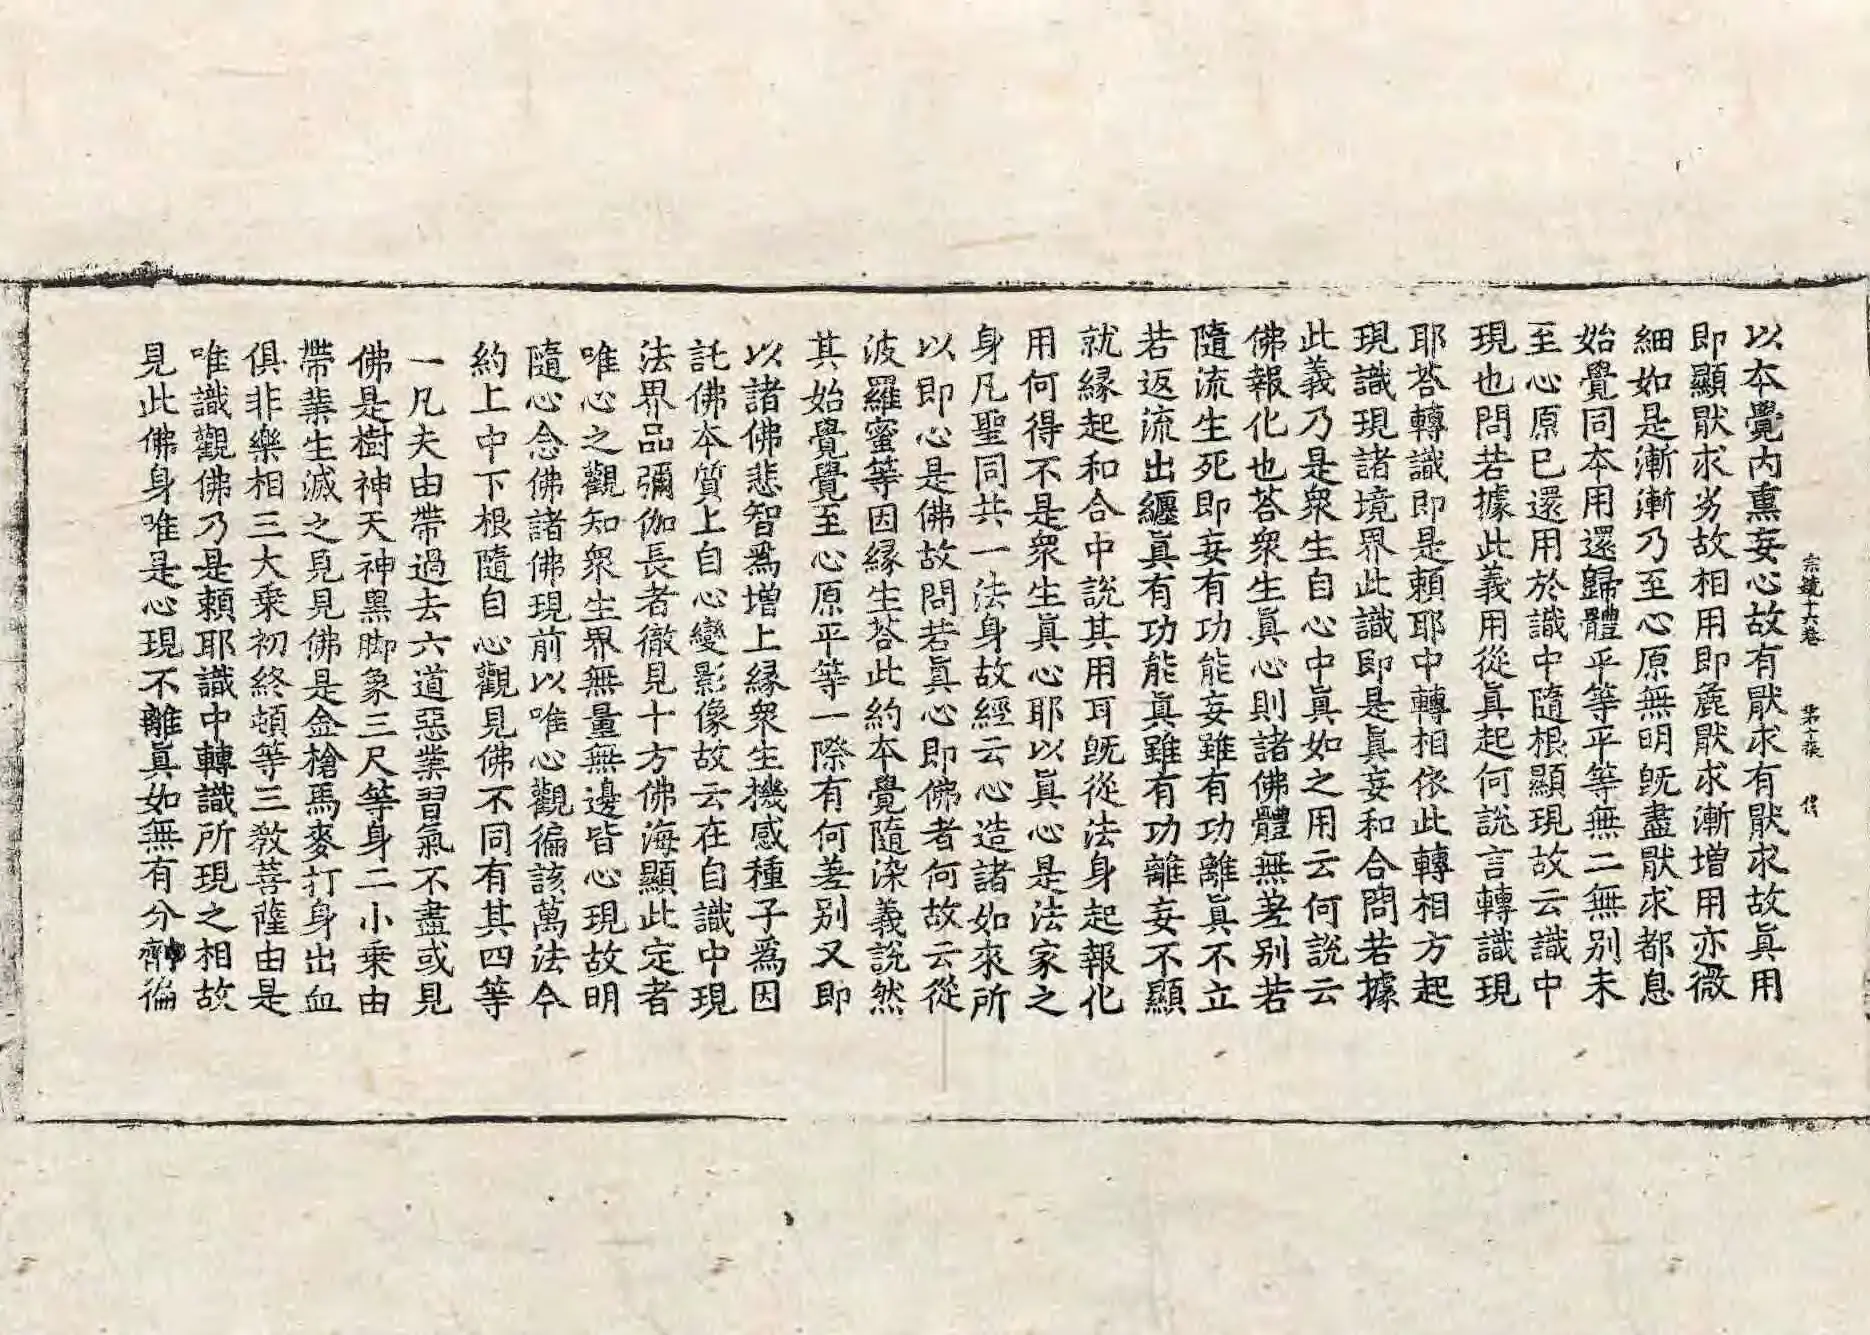 宗鏡十六卷　第十張　俊
以本覺內熏妄心故有猒求有猒求故眞用
即顯猒求劣故相用即麁猒求漸增用亦微
細如是漸漸乃至心原無明旣盡猒求都息
始覺同本用還歸體平等平等無二無別未
至心原已還用於識中隨根顯現故云識中
現也問若據此義用從眞起何說言轉識現
耶荅轉識即是賴耶中轉相依此轉相方起
現識現諸境界此識即是眞妄和合問若據
此義乃是衆生自心中眞如之用云何說云
佛報化也荅衆生眞心則諸佛體無差別若
隨流生死即妄有功能妄雖有功離眞不立
若返流出纏眞有功能眞雖有功離妄不顯
就緣起和合中說其用耳旣從法身起報化
用何得不是衆生眞心耶以眞心是法家之
身凡聖同共一法身故經云心造諸如來所
以即心是佛故問若眞心即佛者何故云從
波羅蜜等因緣生荅此約本覺隨染義說然
其始覺覺至心原平等一際有何差别又即
以諸佛悲智爲增上緣衆生機感種子爲因
託佛本質上自心變影像故云在自識中現
法界品彌伽長者徹見十方佛海顯此定者
唯心之觀知衆生界無量無邊皆心現故明
隨心念佛諸佛現前以唯心觀徧該萬法今
約上中下根隨自心觀見佛不同有其四等
一凡夫由帶過去六道惡業習氣不盡或見
佛是樹神天神黑脚象三尺等身二小乘由
帶業生滅之見見佛是金槍馬麥打身出血
俱非樂相三大乘初終頓等三敎菩薩由是
唯識觀佛乃是賴耶識中轉識所現之相故
見此佛身唯是心現不離眞如無有分劑徧